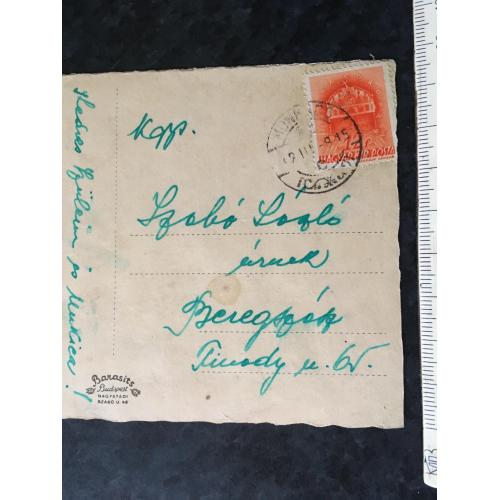 Kedves Szüleim és Mukica!
Kapp.
Szabó László
úrnak
Beregszász
Tinódy u.
MAGYAR KIR. POSTA
Barasits
Budapest
NAGYATÁDI
SZABÓ U. 48